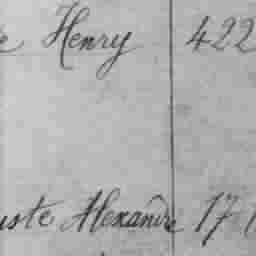 e Henry 422
uste Alexandre 17